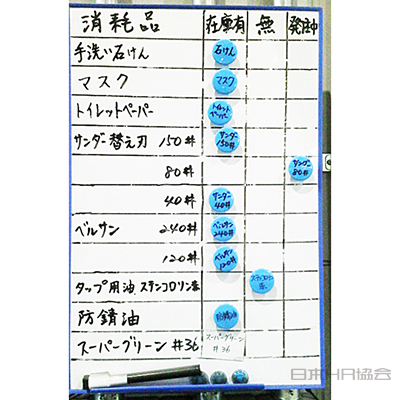 消耗品 在庫有 無 発注中
手洗い石けん 石けん
マスク マスク
トイレットペーパー トイレットペーパー
サンダー替え刃 150# サンダー150#
80# サンダー80#
40# サンダー40#
ベルサン 240# ベルサン240#
120# ベルサン120#
タップ用油 ステンコロリン赤 ステンコロリン赤
防錆油 防錆油
スーパーグリーン #36 スーパーグリーン #36
日本HR協会